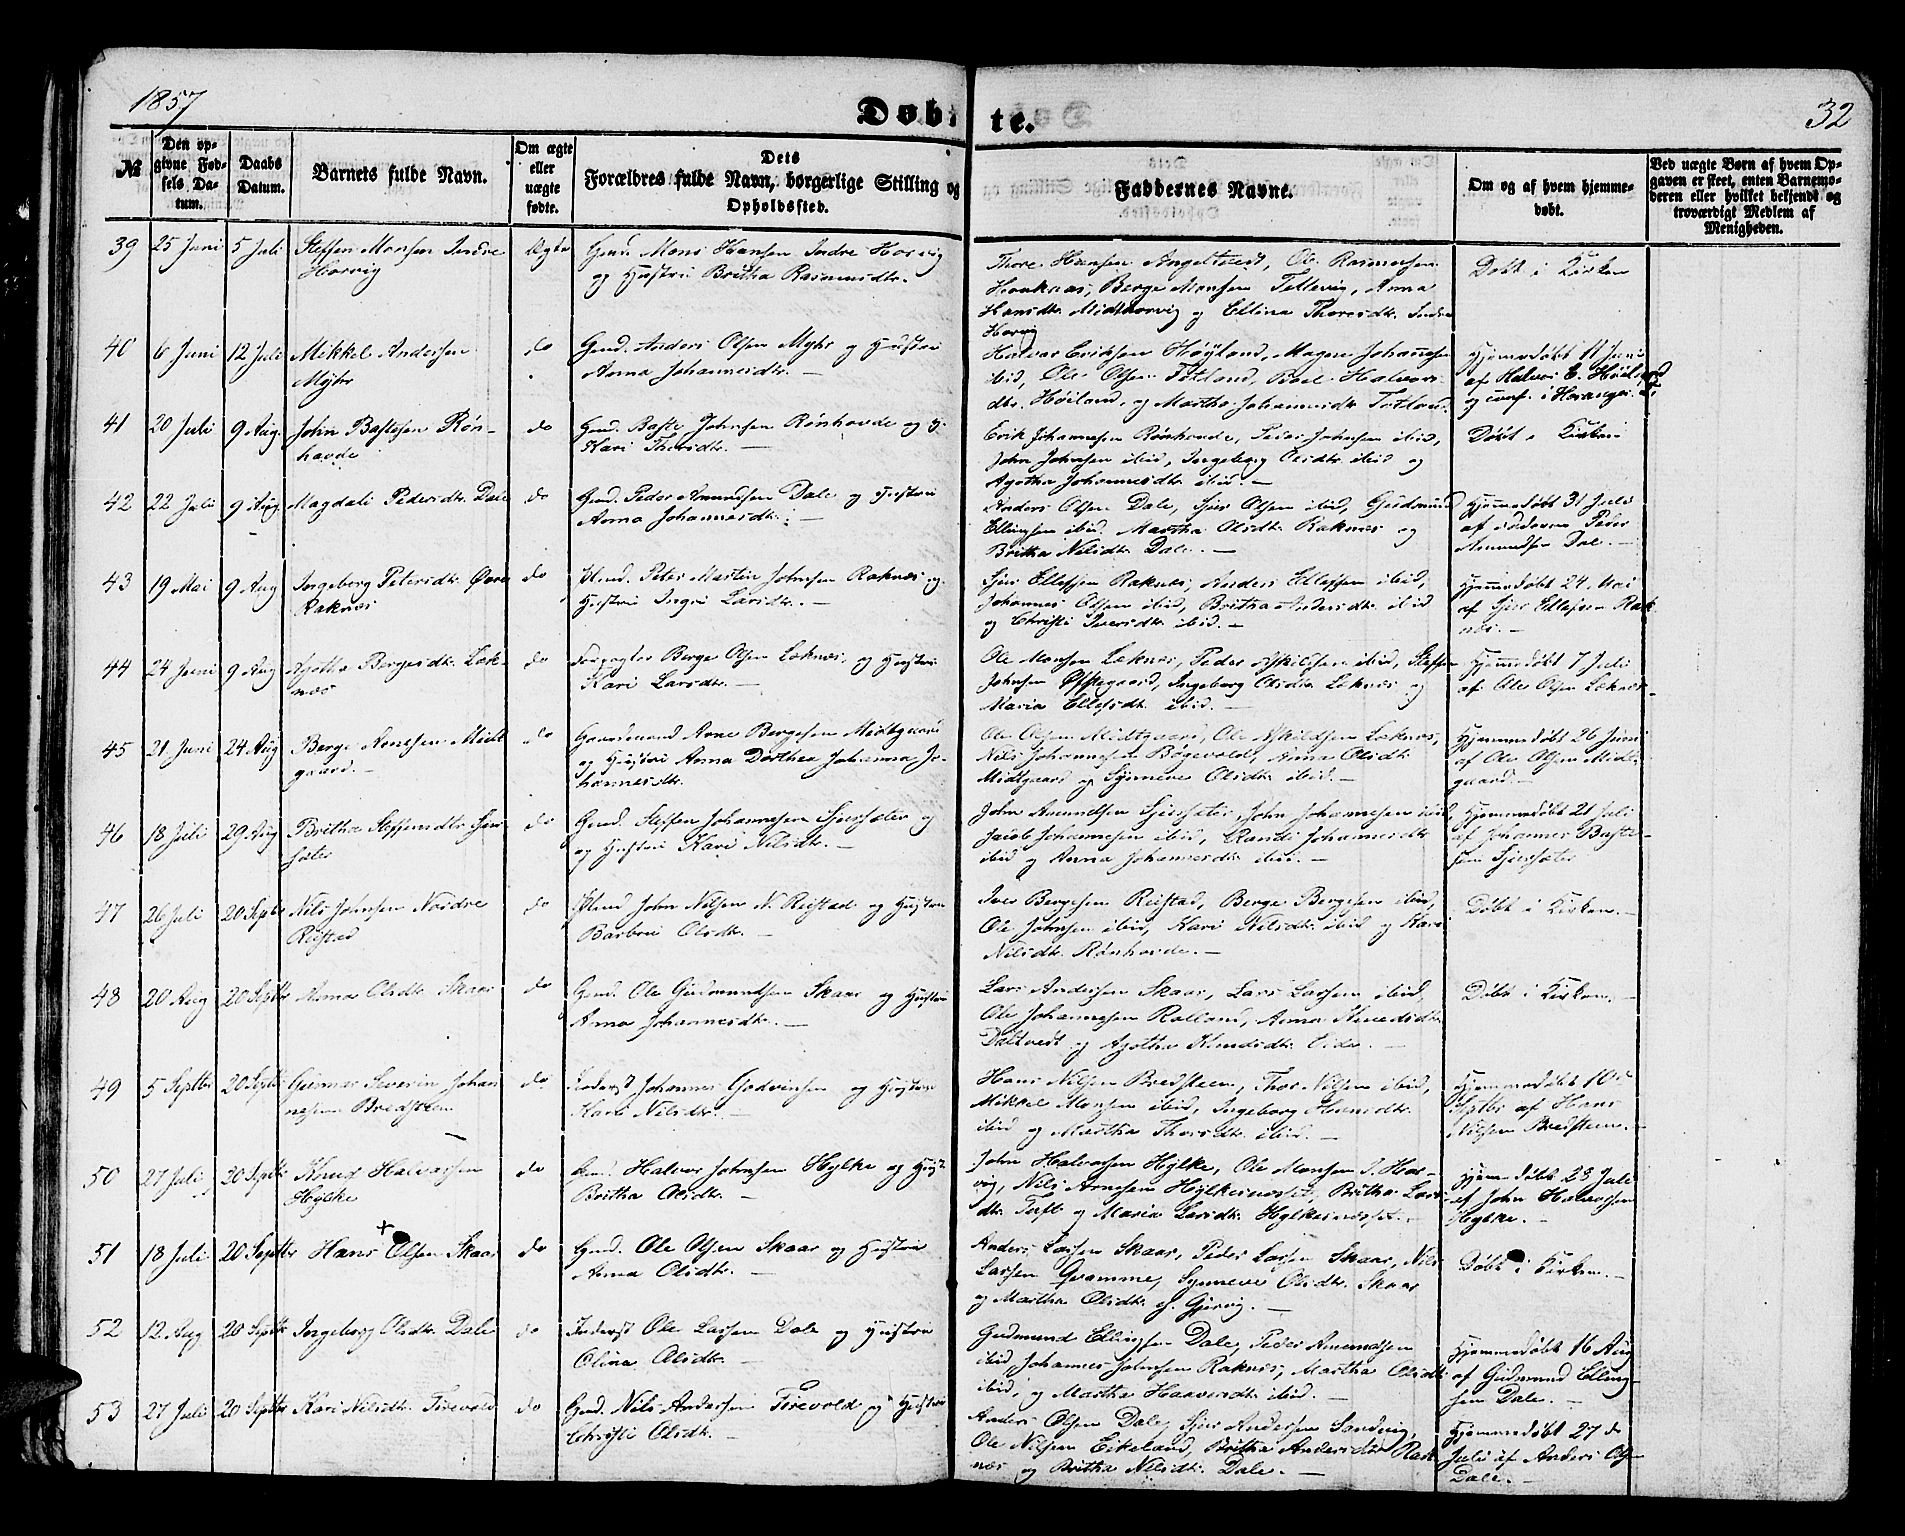 1857
Døbte.
32
№
Den op-
givne Fød-
sels Da-
tum.
Daabs
Datum.
Barnets fulde Navn.
Om ægte
eller
uægte
fødte.
Dets
Forældres fulde Navn, borgerlige Stilling og
Opholdssted.
Faddernes Navne.
Om og af hvem hjemme-
døbt.
Ved uægte Børn af hvem Op-
gaven er skeet, enten Barnemo-
deren eller hvilket bekjendt og
troværdigt Medlem af
Menigheden.
39 25 Juni 5 Juli Steffen Monsen Indre
Horvig
Ægte
Gmd. Mons Hansen Indre Horvig
og Hustru Britha Rasmusdtr.
Thore Hansen Angeltveit, Ole Rasmussen
Houknæs, Berge Monsen Tellevig, Anna
Hansdtr. Midthorvig og Ellina Thoresdtr. Indre
Horvig
Døbt i Kirken
40 6 Juni 12 Juli Mikkel Andersen
Myhr
do
Gmd. Anders Olsen Myhr og Hustru
Anna Johannesdtr. —
Halvor Eriksen Høyland, Magne Johannesen
ibid, Ole Olsen Totland, Boel Halvors-
dtr. Høiland, og Martha Johannesdtr. Totland
Hjemmedøbt 11 Juni
af Halvor E. Høiland
41 20 Juli 9 Aug. John Bastesen Røn-
havde
do
Gmd. Baste Johnsen Rønhovde og H.
Kari Thoresdtr. —
Erik Johannesen Rønhovde, Peder Johnsen ibid,
John Johnsen ibid, Ingeborg Olsdtr. ibid og
Agotha Johannesdtr. ibid. —
Døbt i Kirken
42 22 Juli 9 Aug. Magdali Pedersdtr. Dale
do
Gmd. Peder Amundsen Dale og Hustru
Anna Johannesdtr. —
Anders Olsen Dale, Sjur Olsen ibid, Gudmund
Ellingsen ibid, Martha Olsdtr. Raknæs og
Britha Nilsdtr. Dale. —
Hjemmedøbt 31 Juli
af Faderen Peder
Amundsen Dale. —
43 19 Mai 9 Aug Ingeborg Petersdtr. Øvre
Raknæs
do
Peter Martin Johnsen Raknæs og
Hustru Ingri Larsdtr. —
Sjur Ellefsen Raknæs, Anders Ellefsen ibid,
Johannes Olsen ibid, Britha Andersdtr. ibid
og Christi Iversdtr. ibid. —
Hjemmedøbt 24 Mai
af Sjur Ellefsen Rak-
næs. —
44 24 Juni 9 Aug Agotha Bergesdtr. Løk-
næs
do
Forpagter Berge Olsen Løknæs, og Hustru
Kari Larsdtr. —
Ole Monsen Løknæs, Peder Askildsen ibid, Steffen
Johnsen Opstegaard, Ingeborg Olsdtr. Løknæs og
Maria Ellefsdtr. ibid. —
Hjemmedøbt 7 Juli
af Ole Olsen Løknæs. —
45 21 Juni 24 Aug Berge Arnesen Midt
gaard. —
do
Gaardmand Arne Bergesen Midtgaard
og Hustru Anna Dorthea Johanna Jo-
hannesdtr.
Ole Olsen Midtgaard, Ole Askildsen Løknæs,
Nils Johannesen Bøgevold, Anna Olsdtr.
Midtgaard og Synneve Olsdtr. ibid. —
Hjemmedøbt 26 Juni
af Ole Olsen Midt-
gaard. —
46 18 Juli 29 Aug Britha Steffensdtr. Sjur
sæter
do
Gmd. Steffen Johannesen Sjursæter og
og Hustru Kari Nilsdtr. —
John Amundsen Sjursæter, John Johannesen ibid,
Jacob Johannesen ibid, Randi Johannesdtr.
ibid og Anna Johannesdtr. ibid. —
Hjemmedøbt 21 Juli
af Johannes Baste-
sen Sjursæter
47 26 Juli 20 Septbr Nils Johnsen Nordre
Reistad
do
John Nilsen N. Reistad og Hustru
Barbro Olsdtr. —
Iver Bergesen Reistad, Berge Bergesen ibid,
Ole Johnsen ibid, Kari Nilsdtr. ibid og Kari
Nilsdtr. Rønhovde. —
Døbt i Kirken. —
48 20 Aug 20 Septbr Anna Olsdtr. Skaar
do
Gmd. Ole Gudmundsen Skaar og Hustru
Anna Johannesdtr. —
Lars Andersen Skaar, Lars Larsen ibid,
Ole Johannesen Rolland, Anna
Daltveit og Agotha Knudsdtr. Eide. —
Døbt i Kirken. —
49 5 Septbr 20 Septbr Gunnar Severin Johan
nesen Bredsteen —
do
Inderst Johannes Godvinsen og Hustru
Kari Nilsdtr. —
Hans Nilsen Bredsteen, Thor Nilsen ibid,
Mikkel Monsen ibid, Ingeborg Hansdtr.
ibid og Martha Thorsdtr. ibid. —
Hjemmedøbt 10de
Septbr af Hans
Nilsen Bredsteen. —
50 27 Juli 20 Septbr Knud Halvorsen
Hylke
do
Gmd. Halvor Johnsen Hylke og Hust.
Britha Olsdtr. —
John Halvorsen Hylke, Ole Monsen I. Hor-
vig, Nils Arnesen Hylkesnæsset, Britha Lars-
dtr. Toft og Maria Larsdtr. Hylkesnæsset. —
Hjemmedøbt 28 Juli
af John Halvorsen
Hylke. —
51 18 Juli 20 Septbr Hans + Olsen Skaar
do
Gmd. Ole Olsen Skaar og Hustru
Anna Olsdtr. —
Anders Larsen Skaar, Peder Larsen Skaar, Nils
Larsen Gramme, Synneve Olsdtr. Skaar
og Martha Olsdtr. Gjervig. —
Døbt i Kirken. —
52 12 Aug 20 Septbr Ingeborg Olsdtr. Dale
do
Inderst Ole Larsen Dale og Hustru
Olina Olsdtr. —
Gudmund Ellingsen Dale, Peder Amundsen
ibid, Johannes Johnsen Raknæs, Martha Olsdtr.
ibid, og Martha Haavardtr. ibid. —
Hjemmedøbt 16 Aug
af Gudmund Elling-
sen Dale. —
53 27 Juli 20 Septbr Kari Nilsdtr. Tirevold
do
Gmd. Nils Andersen Tirevold og Hustru
Christi Olsdtr. —
Anders Olsen Dale, Sjur Andersen Sandvig,
Ole Nilsen Eikeland, Britha Andersdtr. Rak-
næs og Britha Nilsdtr. Dale. —
Hjemmedøbt 27 de
Juli af Anders Olsen
Dale. —